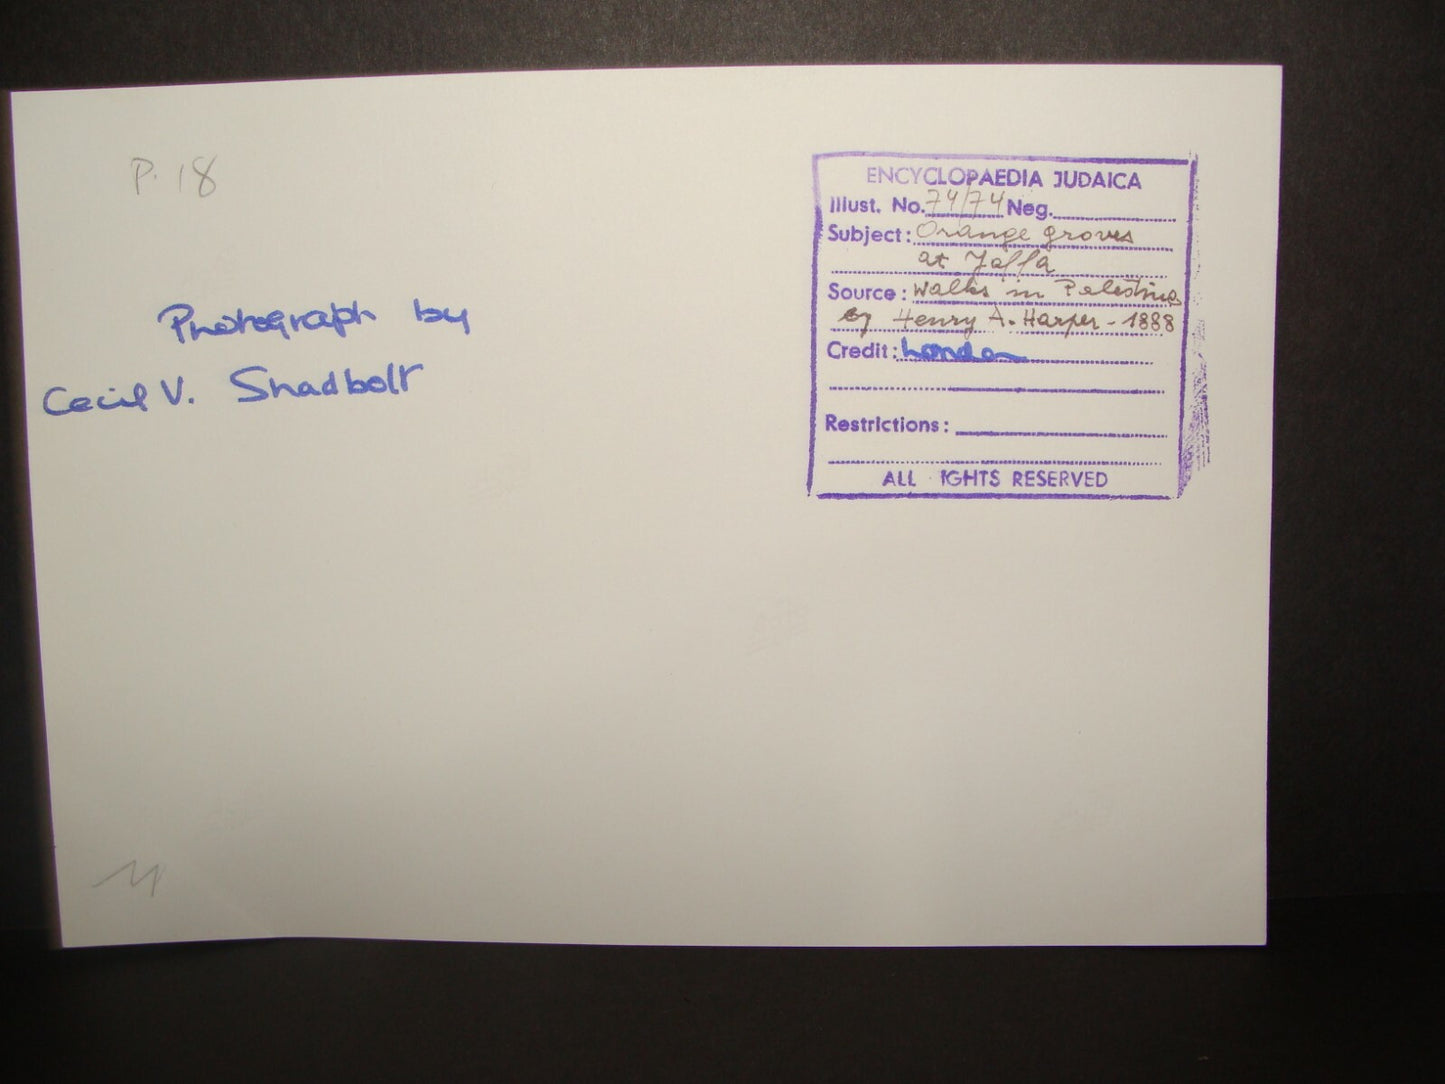 P. 18
Photograph by
Cecil V. Shadbolt
ENCYCLOPAEDIA JUDAICA
Illust. No. 74/74 Neg.
Subject: Orange groves
at Jaffa
Source: Walks in Palestine
by Henry A. Harper - 1888
Credit: London
Restrictions:
ALL IGHTS RESERVED